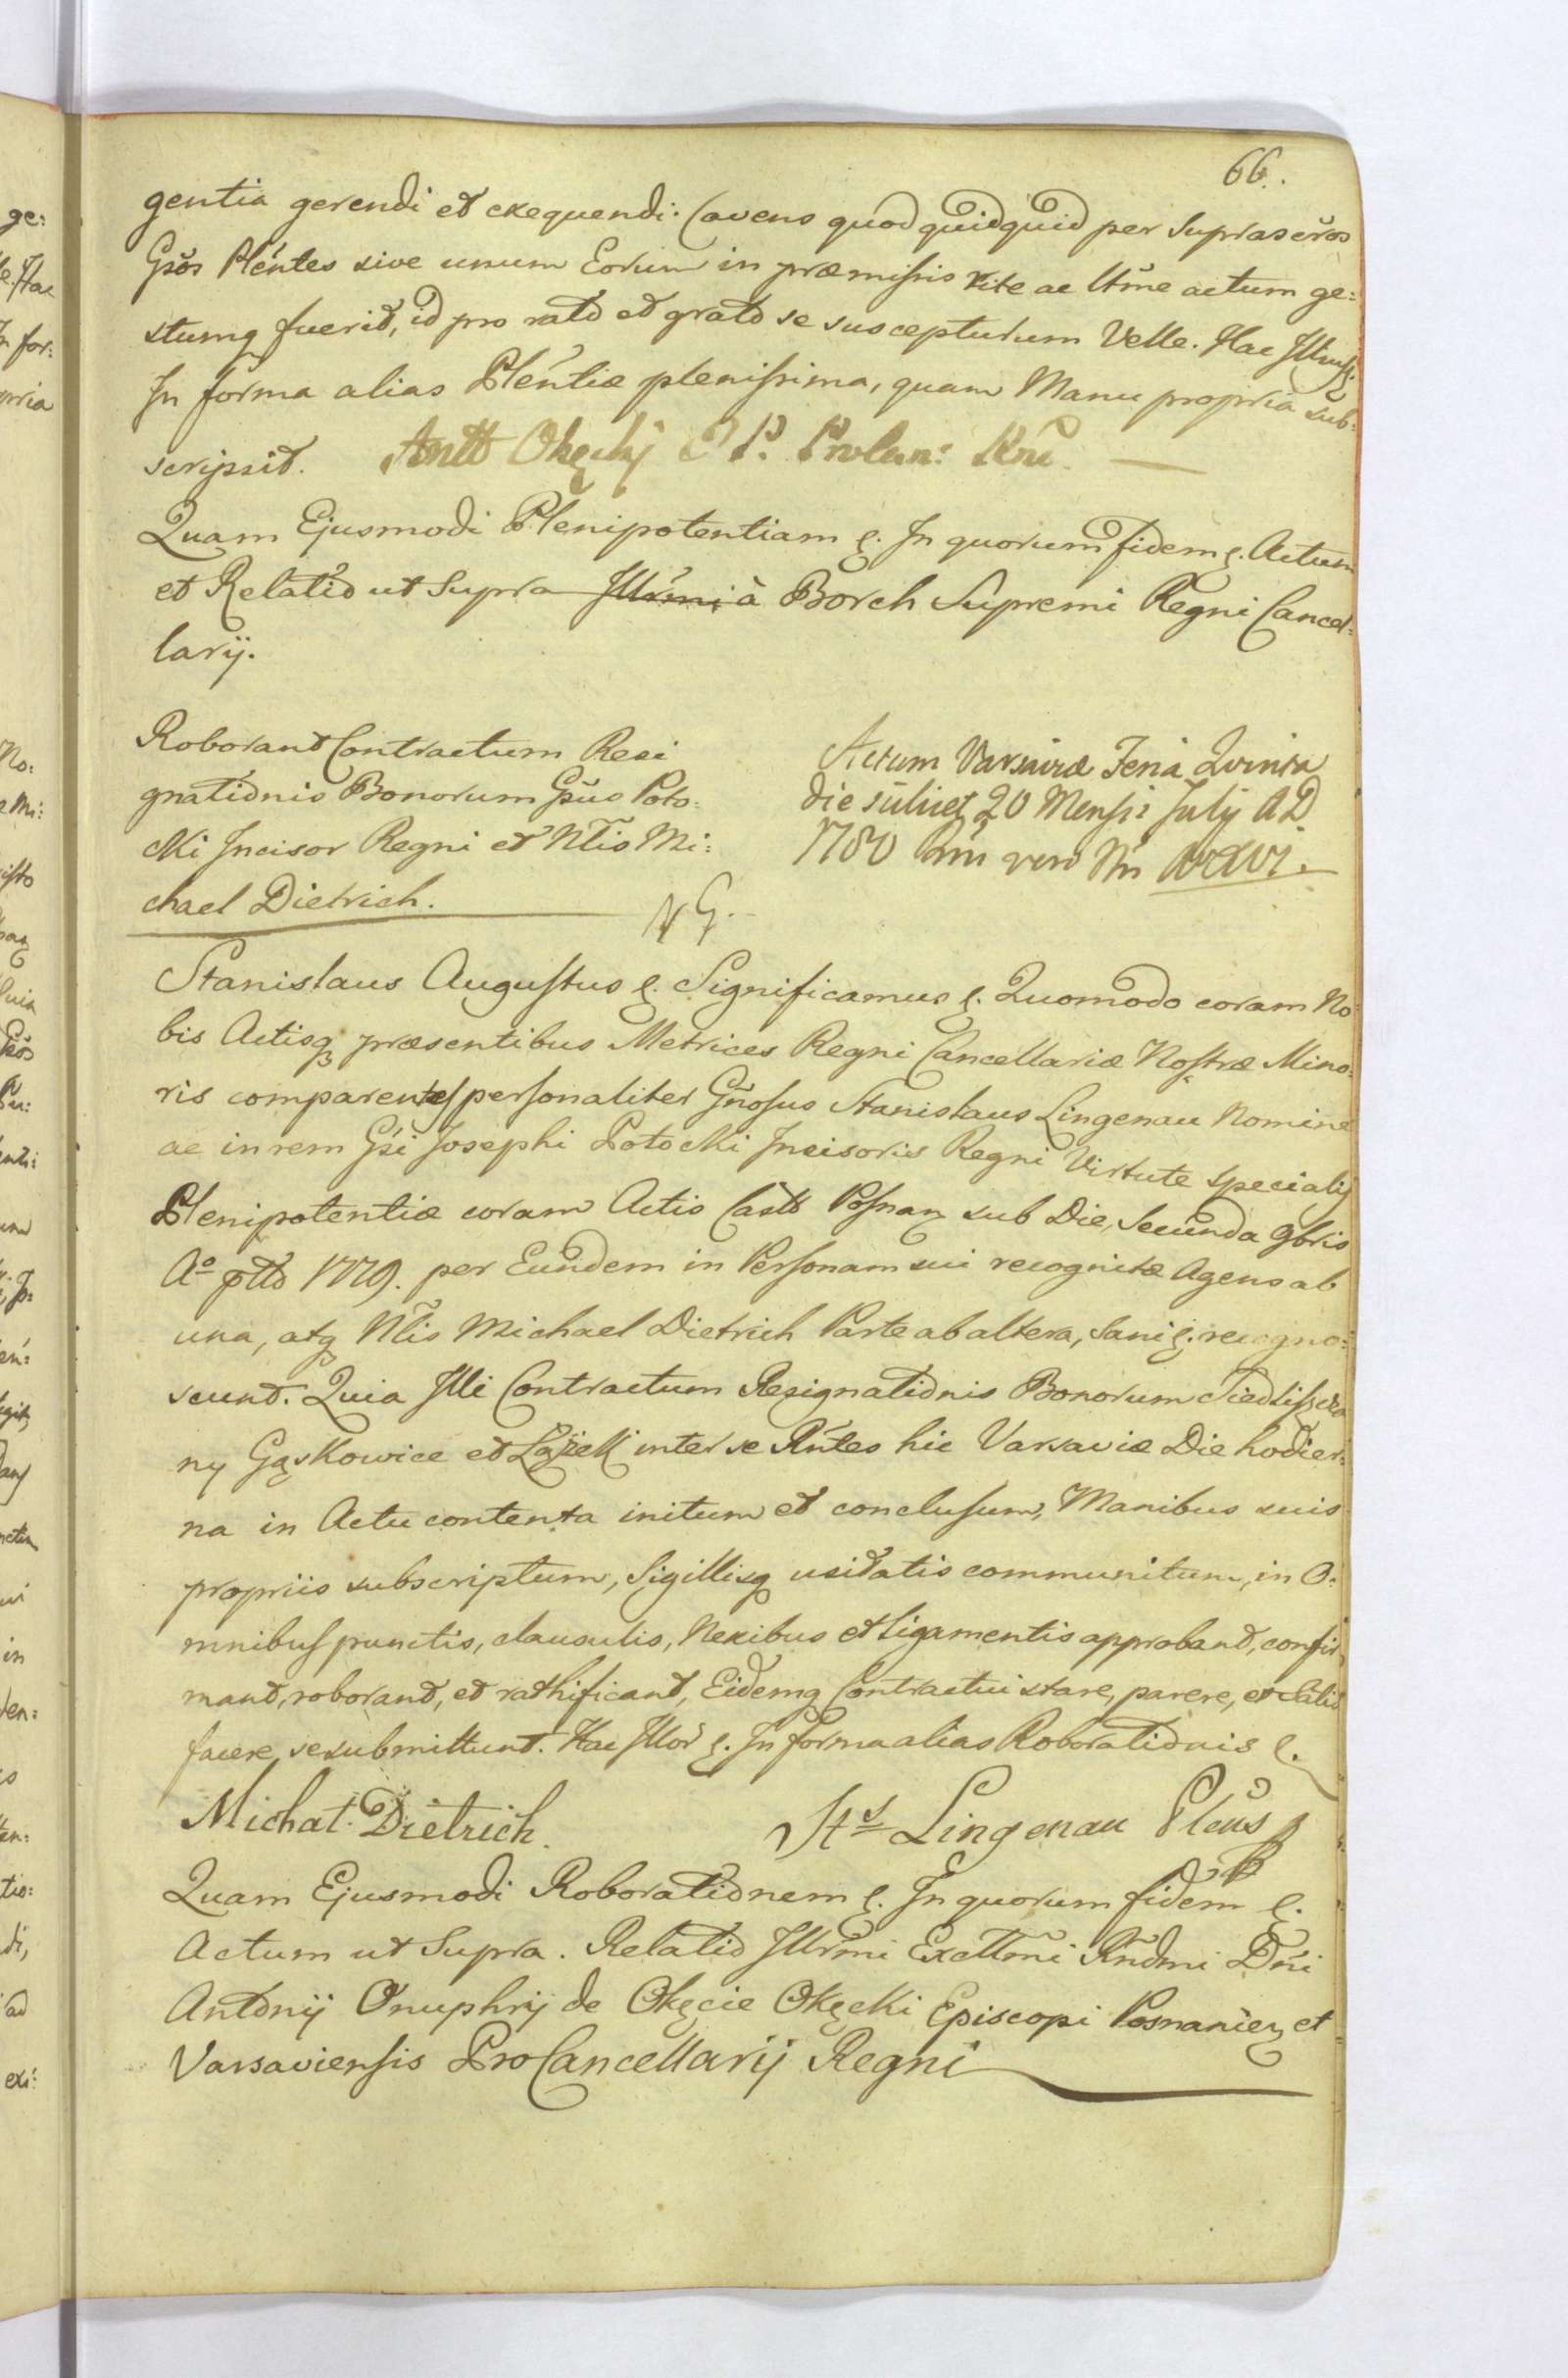 66.
gentia gerendi et exequendi. Cavens quod quidquid per Suprascr̃os
Gr̃os Plentes sive unum Eorum in præmissis rite ac ltm̃e actum ge:
stumq fuerit, id pro rato et grato se suscepturum Velle. Hac Illmss.
In forma alias Pleńtiæ plenissima, quam Manu propria sub:
scripsit.
Quam Ejusmodi Plenipotentiam ę. In quorum fidem ę. Actum
et Relatio ut Supra Illrm̃i à Borch Supremi Regni Cancel:
larij.
Roborant Contractum Resi
gnationis Bonorum Gs̃us Poto:
cki Incisor Regni et Nl̃is Mi:
chael Dietrich.
Actum Varsaviæ Feria Quinta
die scilicet 20 Mensis July A D
1780
Stanislaus Augustus ę. Significamus ę. Quomodo coram No:
bis Actisq præsentibus Metrices Regni Cancellariæ Nostræ Mino:
ris comparentes personaliter Gñosus Stanislaus Lingenau Nomine
ac in rem Gsi Josephi Potocki Incisoris Regni Virtute specialis
Plenipotentiæ coram Actis Castr Posnan sub Die Secunda 9bris
Aº pttõ 1779. per Eundem in Personam sui recognitæ Agens ab
una, atq Nl̃is Michael Dietrich Parte ab altera, Sani ę. recogno:
scunt. Quia Illi Contractum Resignationis Bonorum Siedliszcza
ny Gąskowice et Łążek inter se Rñtes hic Varsaviæ Die hodier:
na in Actu contenta initum et conclusum, Manibus suis
propriis subscriptum, Sigillisq usitatis communitum, in O:
mnibus punctis, clausulis, Nexibus et ligamentis approbant, confir
mant, roborant, et rathificant, Eidemq Contractui stare, parere, et Satis
facere se submittunt. Hac Illor̃ ę. In forma alias Roborationis ę.
Michał Dietrich. Sts Lingenau Pleńs
Quam Ejusmodi Roborationem ę. In quorum fidem ę.
Actum ut Supra. Relatio Illrm̃i Excllm̃i Rñdmi Dñi
Antonij Onuphrij de Okęcie Okęcki Episcopi Posnanień et
Varsaviensis ProCancellarij Regni